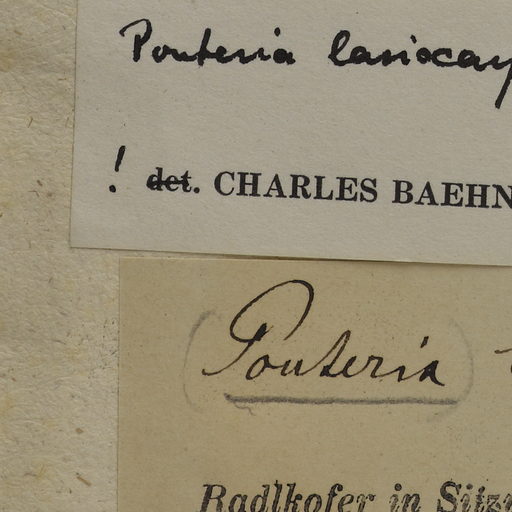 Pouteria lasiocap
! det. CHARLES BAEHN
(Pouteria)
Radlkofer in Sitz